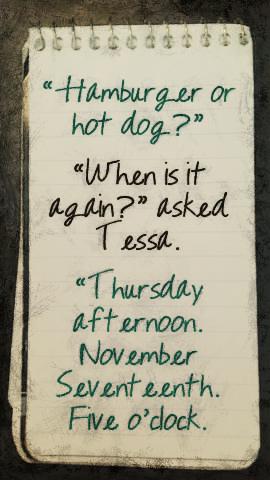 “Hamburger or
hot dog?”
“When is it
again?” asked
Tessa.
“Thursday
afternoon.
November
Seventeenth.
Five o’clock.